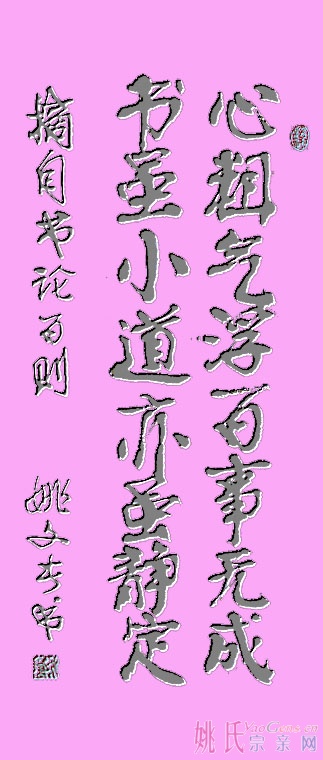 心粗气浮百事无成
书虽小道亦静定
摘自书论百则
姚文书
姚氏宗亲网
YaoGens.cn